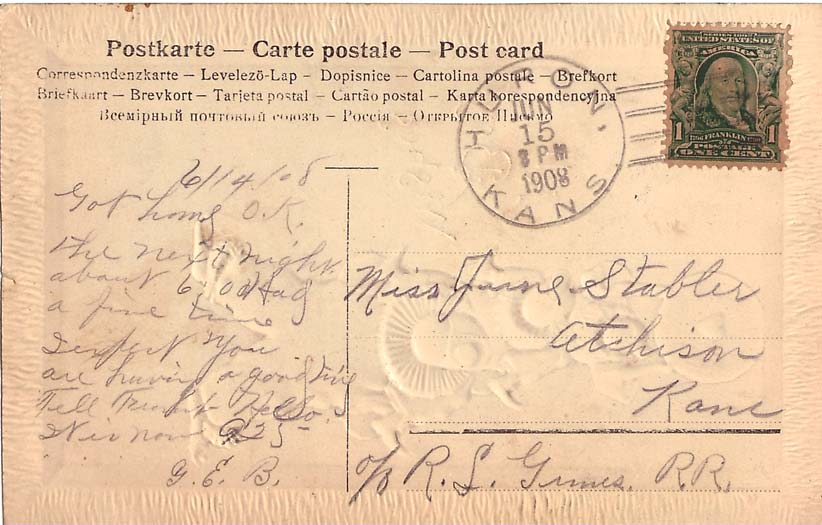 Postkarte — Carte postale — Post card
Correspondenzkarte – Levelezö-Lap – Dopisnice – Cartolina postale – Brefkort
Briefkaart – Brevkort – Tarjeta postal – Cartão postal – Karta korespondencyjna
Всемірный почтовый союзъ – Россія – Открытое Письмо
HURON, KANS
JUN
15
8 PM
1908
SERIES 1902
UNITED STATES OF
AMERICA
FRANKLIN
1 1
POSTAGE
ONE CENT
6/14/08
Got home O.K.
the next night
about 6:00 Had
a fine time
I expect you
are having a good time
Tell Hello
now 9:25
G. E. B.
Miss June Stabler
Atchison
Kans
c/o R. L. Grimes. R.R.